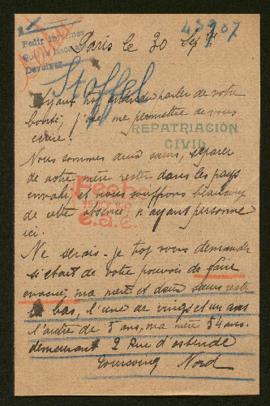 43907
Paris le 30
Pedir
Devolver
Stoffel
Ayant trop entendu parler de votre
bonté, j'ose me permettre de vous
écrire!
REPATRIACIÓN
CIVIL
Nous sommes deux sœurs, séparer
de notre mère resté dans les pays
envahi, et nous souffrons beaucoup
de cette absence, n'ayant personne
ici.
Ne serais-je trop vous demander
si etant de votre pouvoir de faire
evacuer, ma mère et deux sœurs resté
là bas, l'une de vingt et un ans
l'autre de 5 ans, ma mère 54 ans.
demeurant 2 Rue d'ostende
Tourcoing Nord